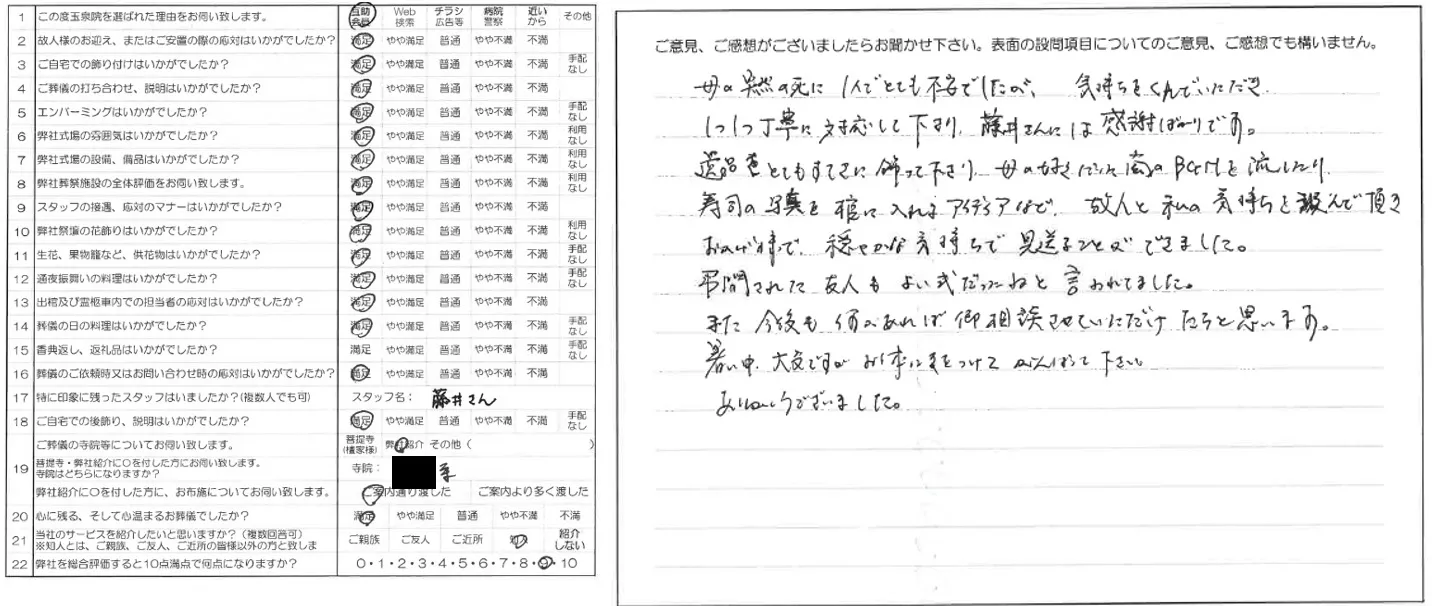 1 この度玉泉院を選ばれた理由をお伺い致します。 互助会員 Web検索 チラシ広告等 病院警察 近いから その他
2 故人様のお迎え、またはご安置の際の応対はいかがでしたか? 満足 やや満足 普通 やや不満 不満
3 ご自宅での飾り付けはいかがでしたか? 満足 やや満足 普通 やや不満 不満 手配なし
4 ご葬儀の打ち合わせ、説明はいかがでしたか? 満足 やや満足 普通 やや不満 不満
5 エンバーミングはいかがでしたか? 満足 やや満足 普通 やや不満 不満 手配なし
6 弊社式場の雰囲気はいかがでしたか? 満足 やや満足 普通 やや不満 不満 利用なし
7 弊社式場の設備、備品はいかがでしたか? 満足 やや満足 普通 やや不満 不満 利用なし
8 弊社葬祭施設の全体評価をお伺い致します。 満足 やや満足 普通 やや不満 不満 利用なし
9 スタッフの接遇、応対のマナーはいかがでしたか? 満足 やや満足 普通 やや不満 不満
10 弊社祭壇の花飾りはいかがでしたか? 満足 やや満足 普通 やや不満 不満 利用なし
11 生花、果物籠など、供花物はいかがでしたか? 満足 やや満足 普通 やや不満 不満 手配なし
12 通夜振舞いの料理はいかがでしたか? 満足 やや満足 普通 やや不満 不満 手配なし
13 出棺及び霊柩車内での担当者の応対はいかがでしたか? 満足 やや満足 普通 やや不満 不満
14 葬儀の日の料理はいかがでしたか? 満足 やや満足 普通 やや不満 不満 手配なし
15 香典返し、返礼品はいかがでしたか? 満足 やや満足 普通 やや不満 不満 手配なし
16 葬儀のご依頼時又はお問い合わせ時の応対はいかがでしたか? 満足 やや満足 普通 やや不満 不満
17 特に印象に残ったスタッフはいましたか?(複数人でも可) スタッフ名: 藤井さん
18 ご自宅での後飾り、説明はいかがでしたか? 満足 やや満足 普通 やや不満 不満 手配なし
19 ご葬儀の寺院等についてお伺い致します。 菩提寺(檀家様) 弊社紹介 その他( )
菩提寺・弊社紹介に○を付した方にお伺い致します。
寺院はどちらになりますか? 寺院: 寺
弊社紹介に○を付した方に、お布施についてお伺い致します。 ご案内通り渡した ご案内より多く渡した
20 心に残る、そして心温まるお葬儀でしたか? 満足 やや満足 普通 やや不満 不満
21 当社のサービスを紹介したいと思いますか?(複数回答可)
※知人とは、ご親族、ご友人、ご近所の皆様以外の方と致しま ご親族 ご友人 ご近所 知人 紹介しない
22 弊社を総合評価すると10点満点で何点になりますか? 0・1・2・3・4・5・6・7・8・9・10
ご意見、ご感想がございましたらお聞かせ下さい。表面の設問項目についてのご意見、ご感想でも構いません。
母の突然の死に 1人でとても不安でしたが、 気持ちをくんでいただき
1つ1つ丁寧に対応して下さり、藤井さんには感謝ばかりです。
遺品をとてもすてきに飾って下さり、母の好きだった のBGMを流したり
寿司の写真を棺に入れるアイディアなど、故人と私の気持ちを汲んで頂き
おかげ様で、穏やかな気持ちで見送ることができました。
弔問された友人もよい式だったねと言われてました。
また今後も何かあれば御相談させていただけたらと思います。
暑い中、大変ですがお体に気をつけてがんばって下さい。
ありがとうございました。